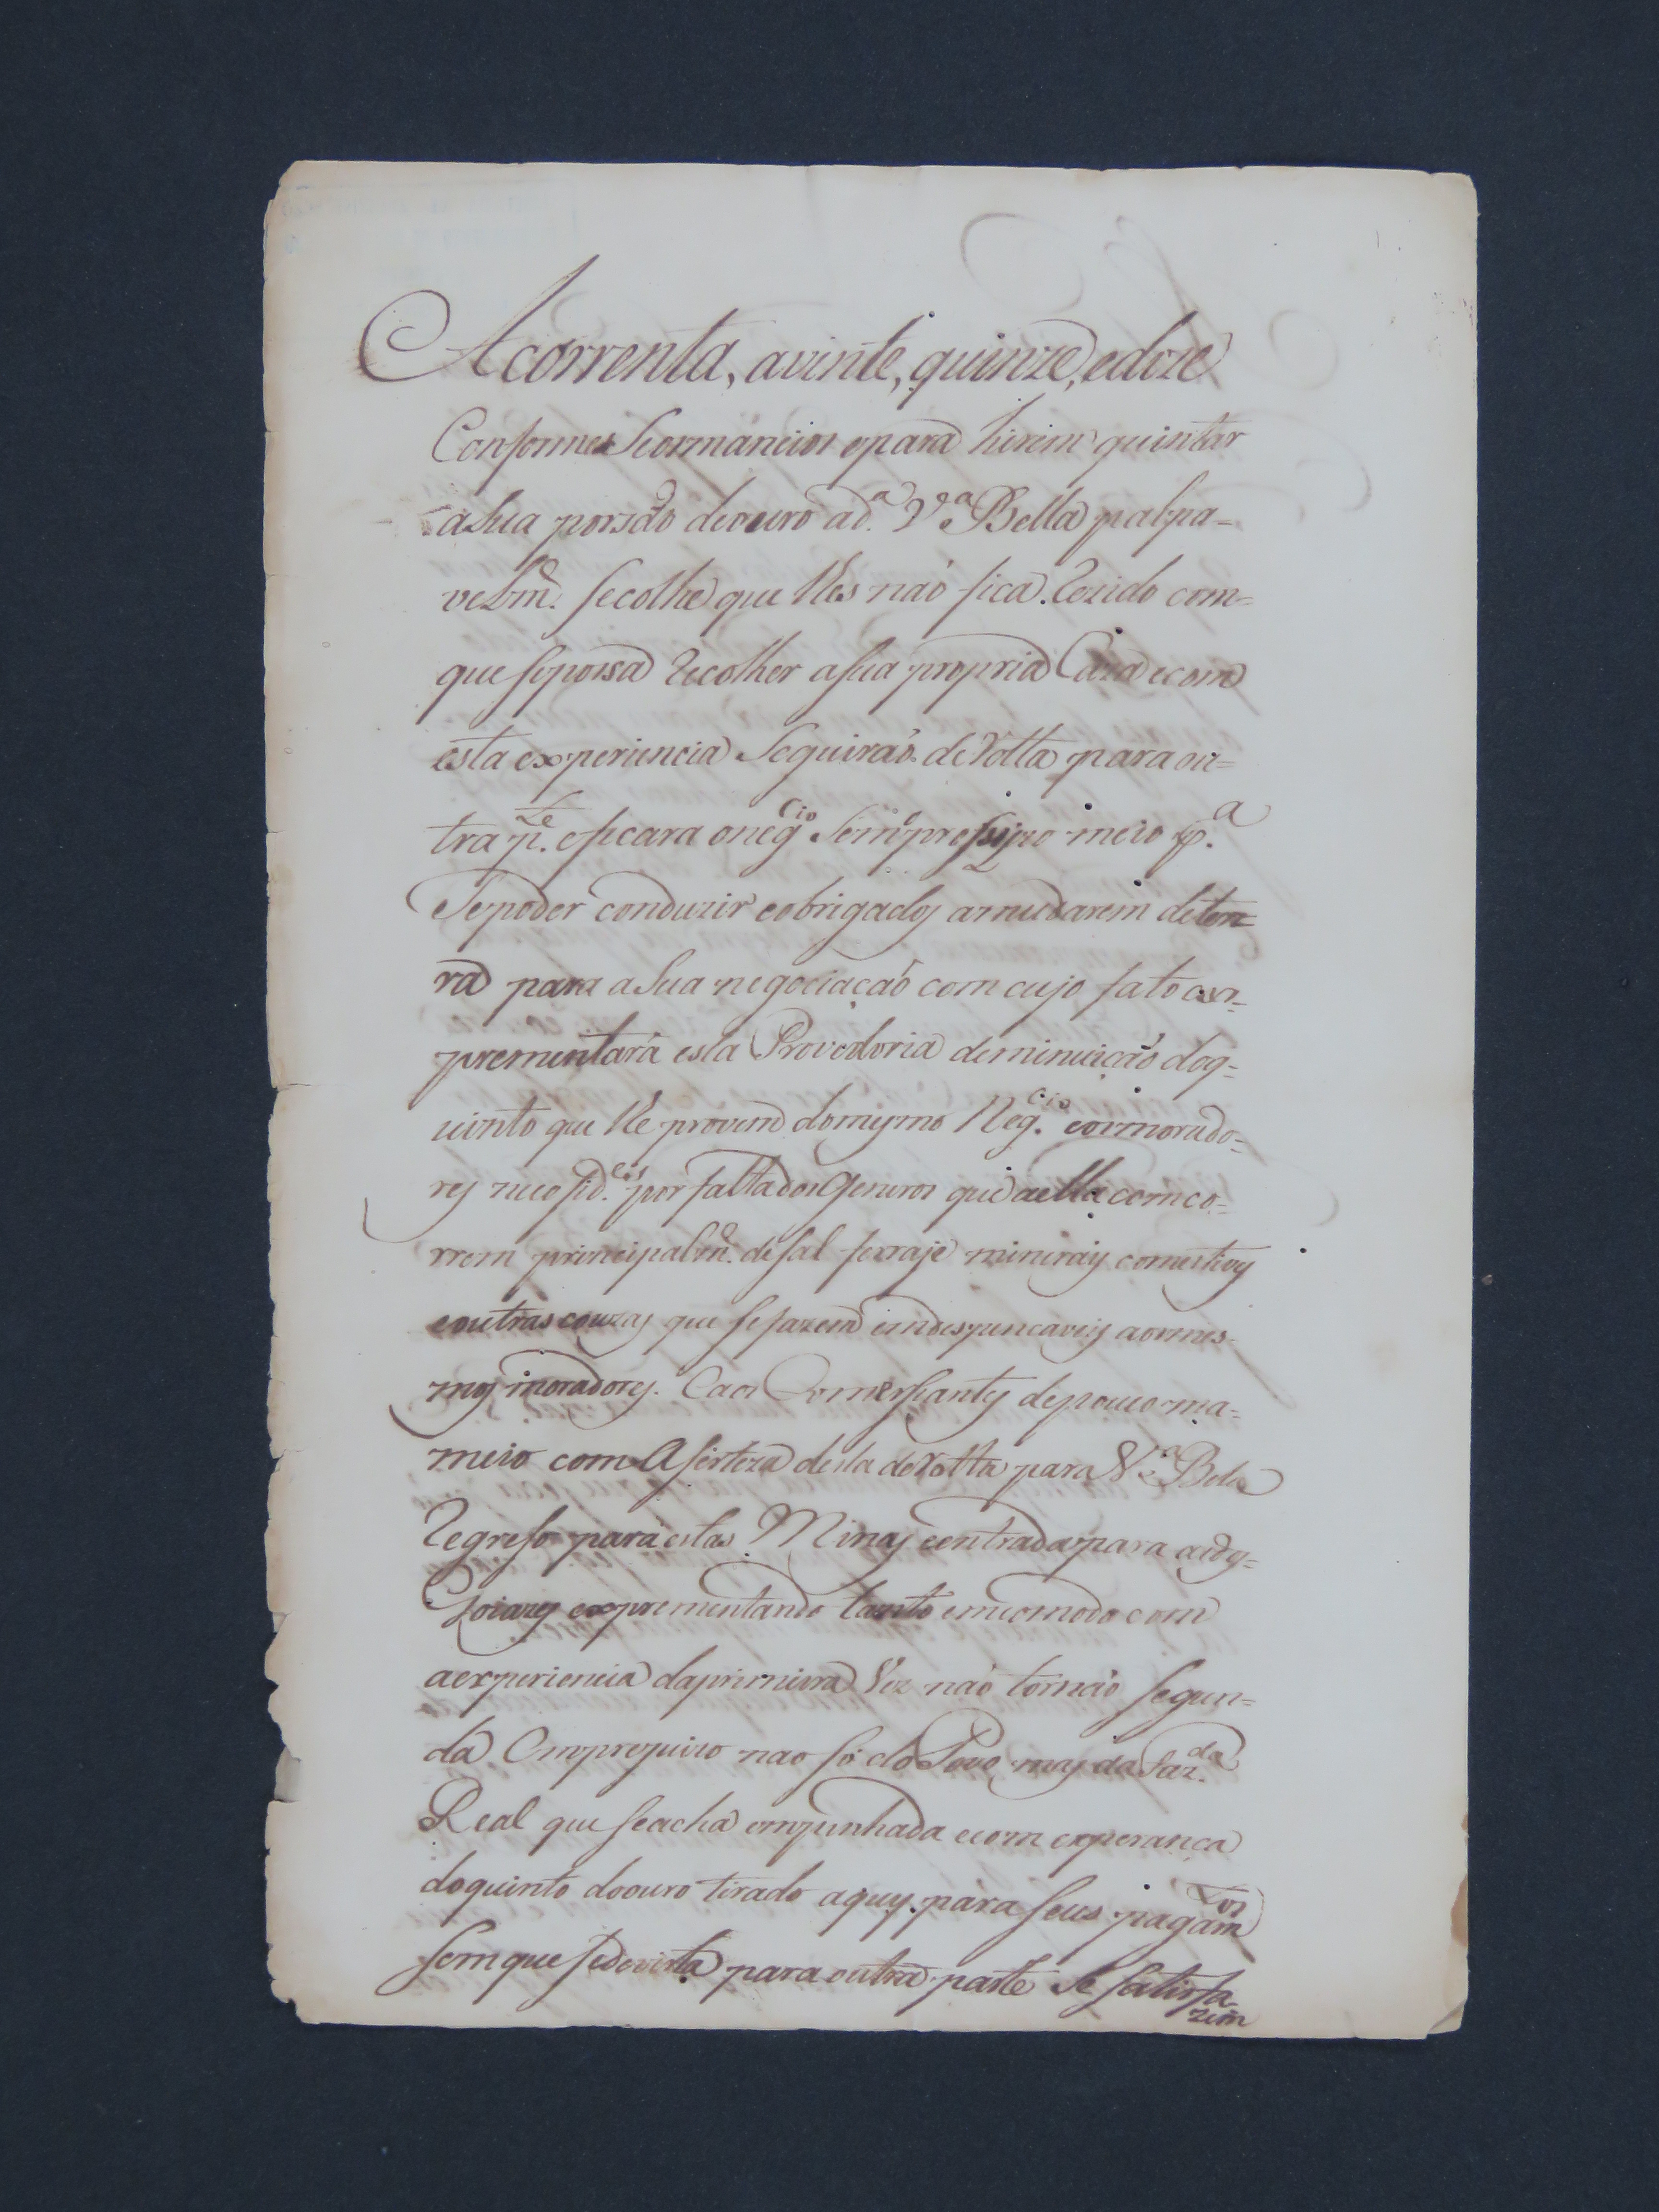 Acorrenta, avinte, quinze, edoze
Conformes Seormancior epara hirim quintar
aSua porsaõ deouro ad.ª V.ª Bella palpa-
velm̃. secolhe que lhes naõ fica Rezido com=
que seporsa Recolher asua propria Caza ecom
esta experiencia Seguiraõ deRotta para ou=
tra p.te eficara oneg.cio Sem pro meio p.ª
Sepoder conduzir eobrigados amudarem deter=
ra para aSua negociaçaõ com cujo fato ex-
prementará esta Provedoria deminuiçaõ doq=
uinto que lhe provem domesmo Neg.cio eormorado=
res necosid.es por faltador Generor que aella comco=
rrem principalm̃. desal ferraje minerais comestivos
eoutras couzas que sefazem emdespencaveis aormes-
mos moradores. Eaor Comersiantes depouco ma=
meio com Aserteza desta deRotta para V.ª Bela
Regreso para estas Minas eentradar para aidos=
Goiazes exprementando tanto emcomodo com
aexperiencia daprimeira Vez naõ tornaõ segun=
da Omprejuizo nao só do Povo, mas da Faz.da
Real que seacha empenhada ecom experança
doquinto doouro tirado aquy para seus pagam.tos
semque sedevirta para outra parte Se satisfa
zem